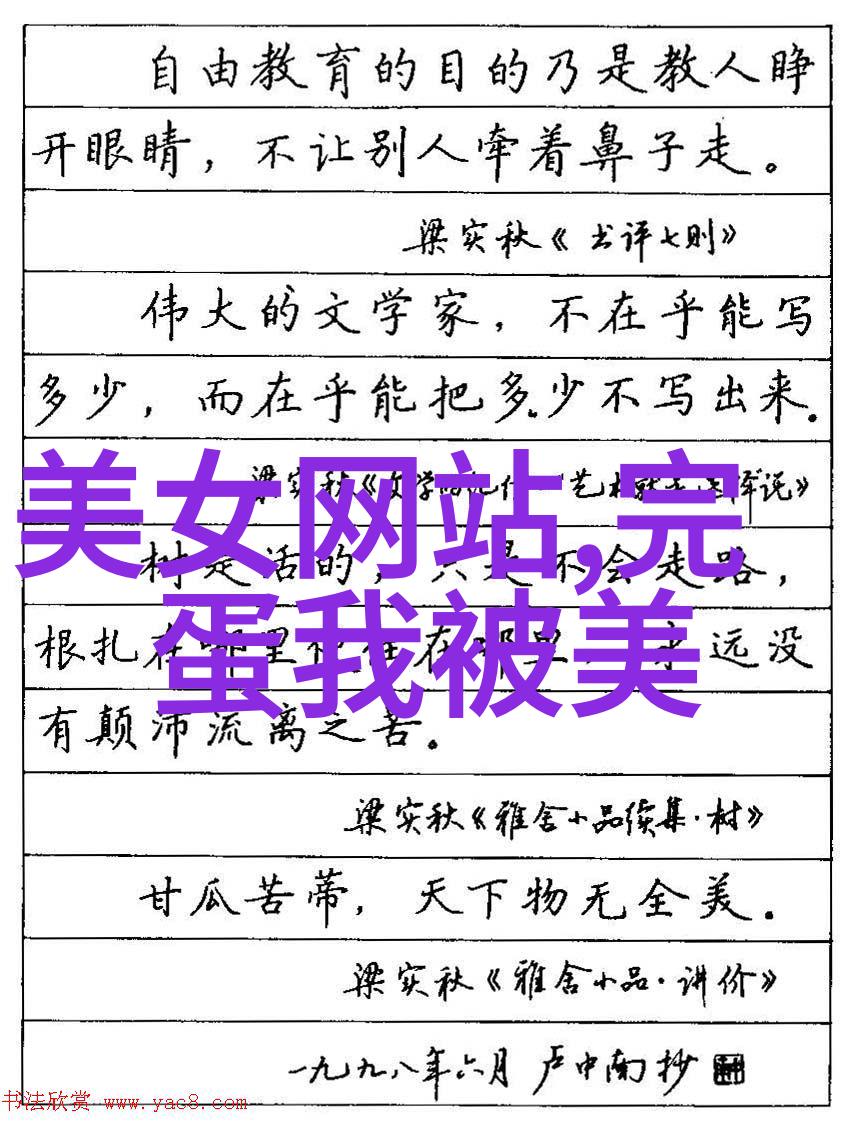 自由教育的目的乃是教人睁
开眼睛，不让别人牵着鼻子走。
梁实秋《书评七则》
伟大的文学家，不在乎能写
多少，而在乎能把多少不写出来.
梁实秋《文学的 艺术 说》
美女网站,完
树是活的，只是不会走路，
蛋我被美
根扎在哪里 住在哪里 永远没
有颠沛流离之苦。
梁实秋《雅舍小品续集·树》
甘瓜苦蒂，天下物无全美.
梁实秋《雅舍小品·讲价》
一九九八年六月 卢中南抄
书法欣赏 www.yac8.com